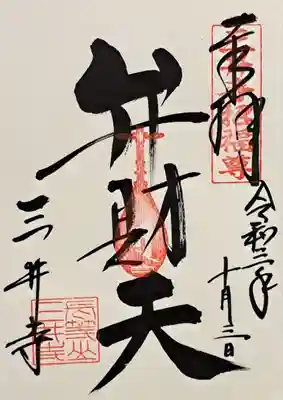 奉拝
令和三年
十月三日
弁財天
三井寺